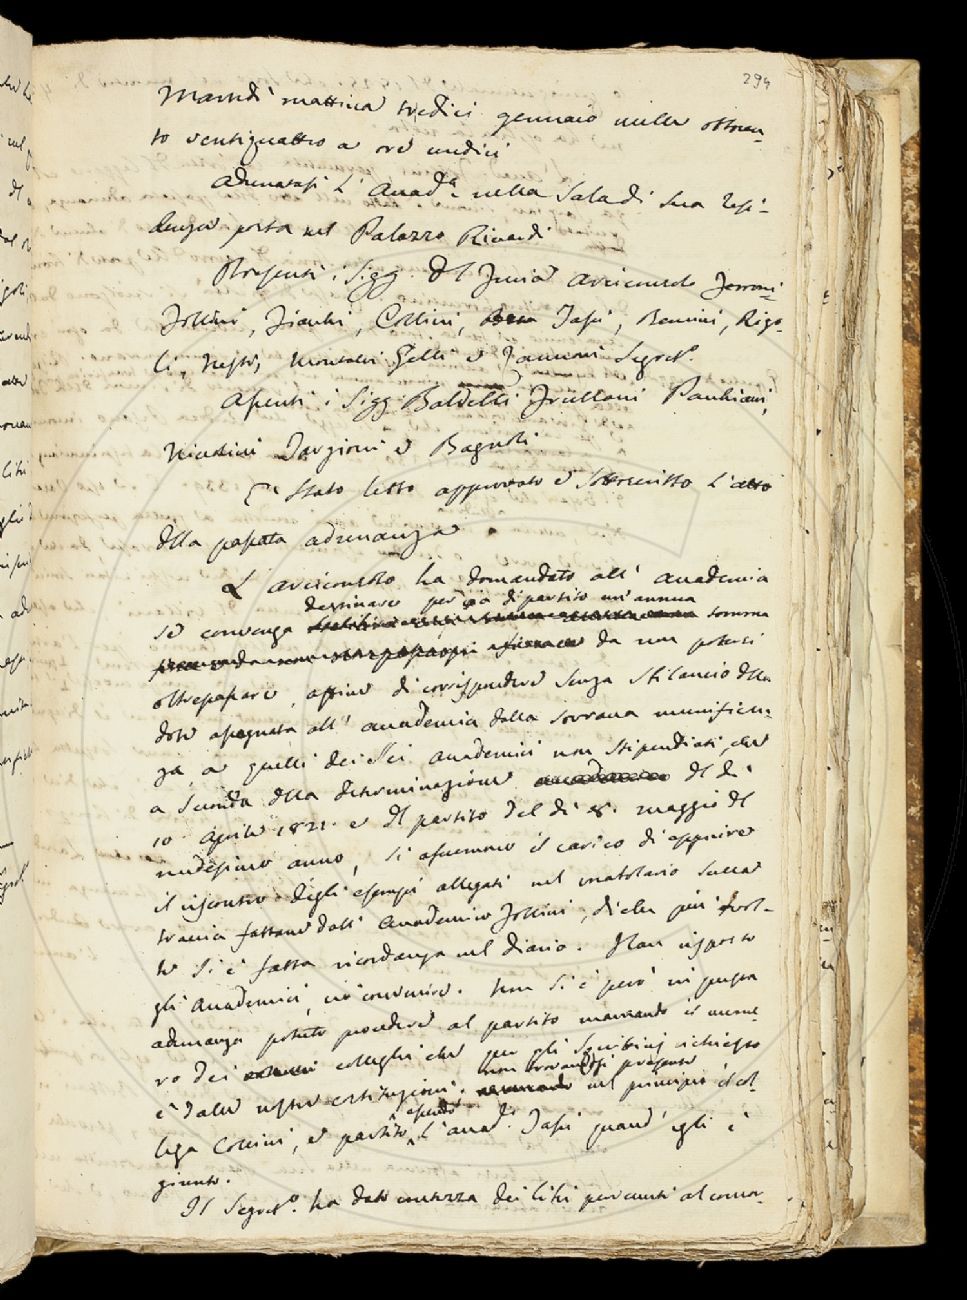 294
Martedì mattina tredici gennaio mille ottocen-
to ventiquattro a ore undici
Adunatasi l'Accad.ª nella Sala di sua resi-
denza posta nel Palazzo Riccardi
Presenti i Sigg. Del Furia Arciconsolo Ferroni
Follini, Fiacchi, Collini, Tassi, Bencini, Rigo-
li, Nesti, Montalvi Gelli e Zannoni Segret.º
Assenti i Sigg. Baldelli Frullani Pauliani,
Niccolini Targioni e Bagnoli.
È stato letto approvato e sottoscritto l'atto
della passata adunanza
L'arciconsolo ha domandato all'accademia
destinare per via di partito un'annua
se convenga somma
da non potersi
oltrepassare, affine di corrispondere senza sbilancio della
dote assegnata all'accademia dalla sovrana munificen-
za, a quelli dei Sei Accademici non stipendiati, che
a seconda della determinazione del dì
10 Aprile 1821. e del partito del dì 8. maggio del
medesimo anno, si assumono il carico di eseguire
il riscontro degli esempi allegati nel vocabolario sulla
traccia fattane dall'Accademico Follini, di che più vol-
te si è fatta ricordanza nel diario. Han risposto
gli Accademici, ciò convenire. Non si è però in questa
adunanza potuto procedere al partito mancando il nume-
ro dei colleghi che per gli squittinj richiesto
è dalle nostre costituzioni. non trovandosi presente nel principio il col-
lega Collini, e partito essendo l'accad. Tassi quand'egli è
giunto.
Il Segret.º ha dato contezza dei libri pervenuti al concor-